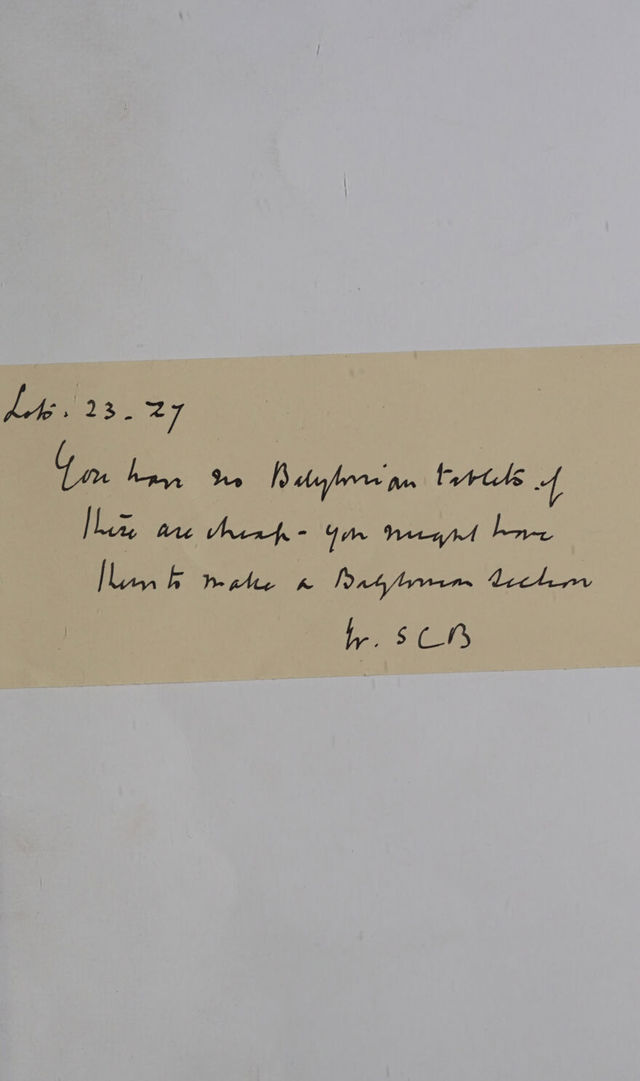 Lots. 23-27
You have no Babylonian tablets if
these are cheap - you might have
them to make a Babylonian section
S C B